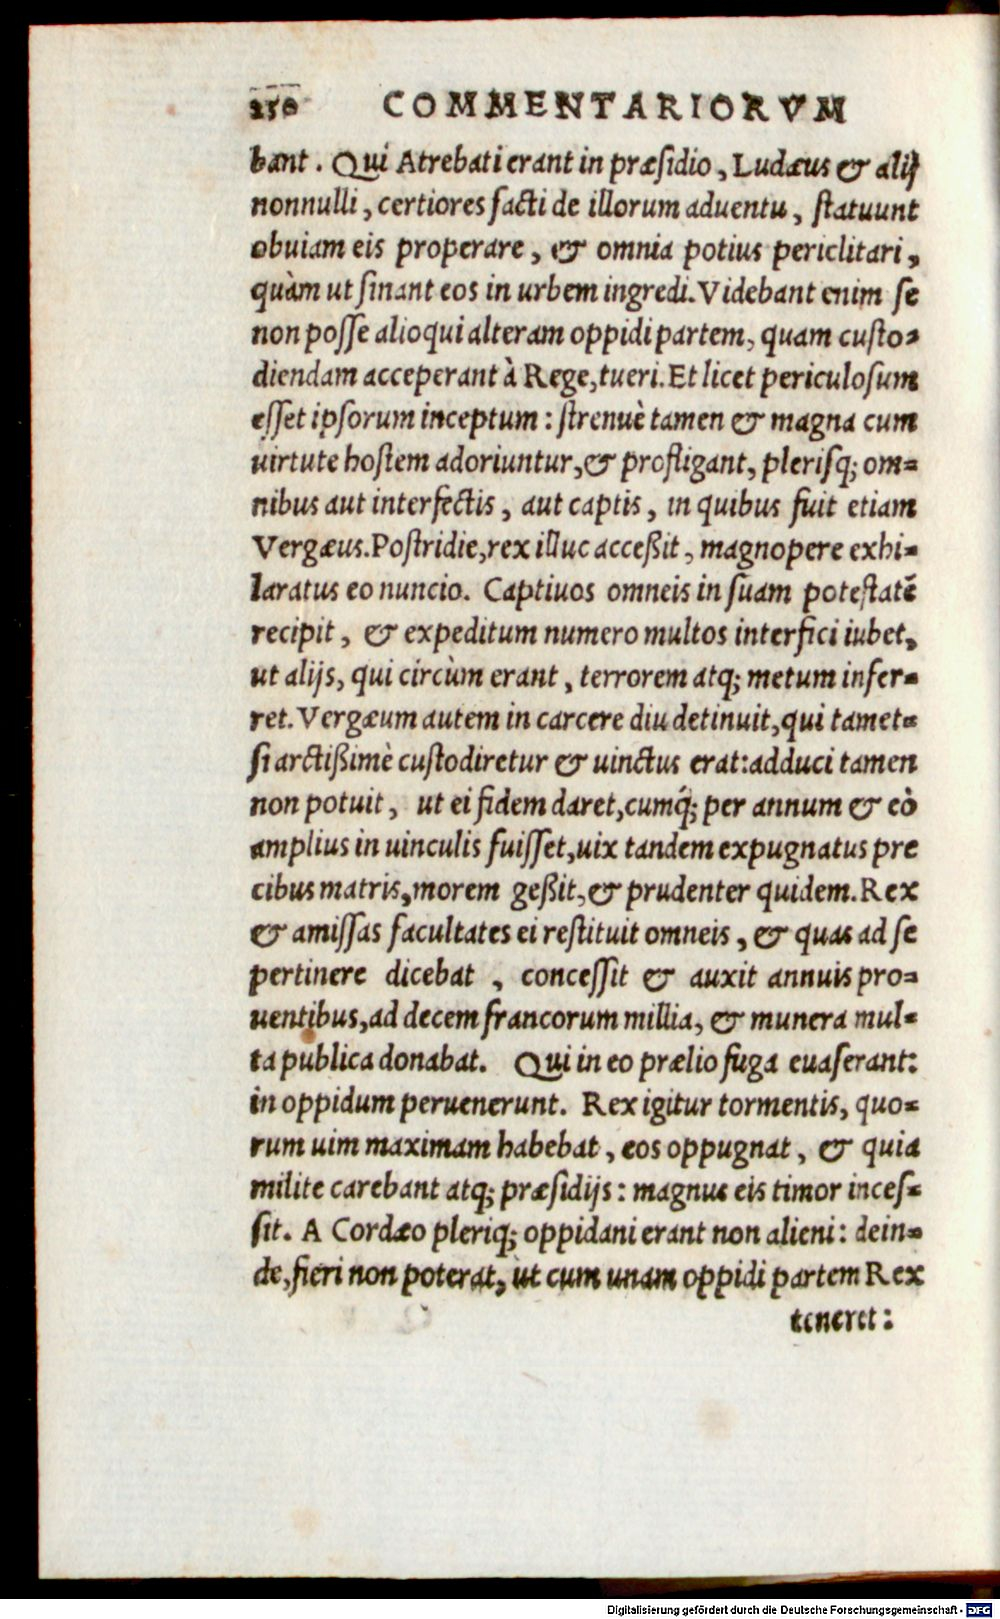 250 COMMENTARIORVM
bant. Qui Atrebati erant in præsidio, Ludæus & alij
nonnulli, certiores facti de illorum aduentu, statuunt
obuiam eis properare, & omnia potius periclitari,
quàm ut sinant eos in urbem ingredi. Videbant enim se
non posse alioqui alteram oppidi partem, quam custo-
diendam acceperant à Rege, tueri. Et licet periculosum
esset ipsorum inceptum: strenuè tamen & magna cum
uirtute hostem adoriuntur, & profligant, plerisq; om-
nibus aut interfectis, aut captis, in quibus fuit etiam
Vergæus. Postridie, rex illuc acceßit, magnopere exhi-
laratus eo nuncio. Captiuos omneis in suam potestatē
recipit, & expeditum numero multos interfici iubet,
ut alijs, qui circùm erant, terrorem atq; metum infer-
ret. Vergæum autem in carcere diu detinuit, qui tamet-
si arctißimè custodiretur & uinctus erat: adduci tamen
non potuit, ut ei fidem daret, cumq́; per annum & eò
amplius in uinculis fuisset, uix tandem expugnatus pre
cibus matris, morem geßit, & prudenter quidem. Rex
& amissas facultates ei restituit omneis, & quas ad se
pertinere dicebat, concessit & auxit annuis pro-
uentibus, ad decem francorum millia, & munera mul-
ta publica donabat. Qui in eo prælio fuga euaserant:
in oppidum peruenerunt. Rex igitur tormentis, quo-
rum uim maximam habebat, eos oppugnat, & quia
milite carebant atq; præsidijs: magnus eis timor inces-
sit. A Cordæo pleriq; oppidani erant non alieni: dein-
de, fieri non poterat, ut cum unam oppidi partem Rex
teneret:
Digitalisierung gefördert durch die Deutsche Forschungsgemeinschaft - DFG